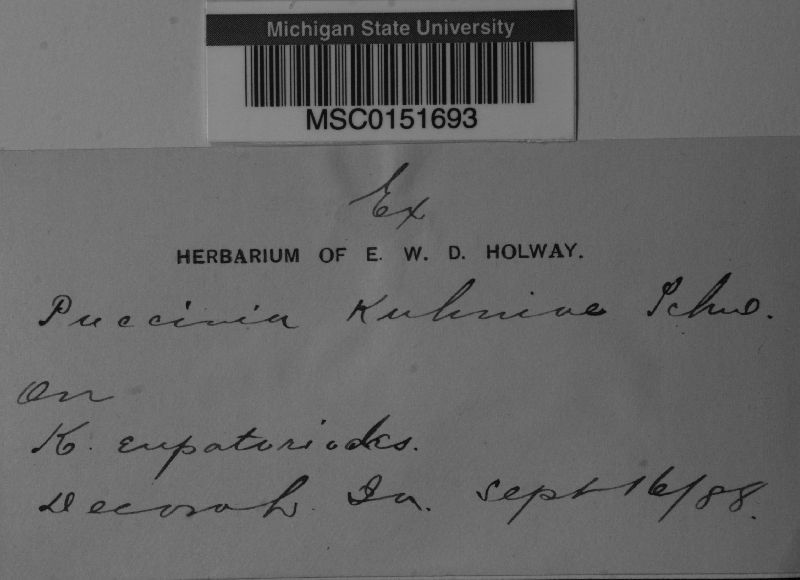 Michigan State University
MSC0151693
Ex
HERBARIUM OF E. W. D. HOLWAY.
Puccinia Kuhniae Schw.
On
K. eupatoriodes.
Decorah. Ia. Sept 16/88.